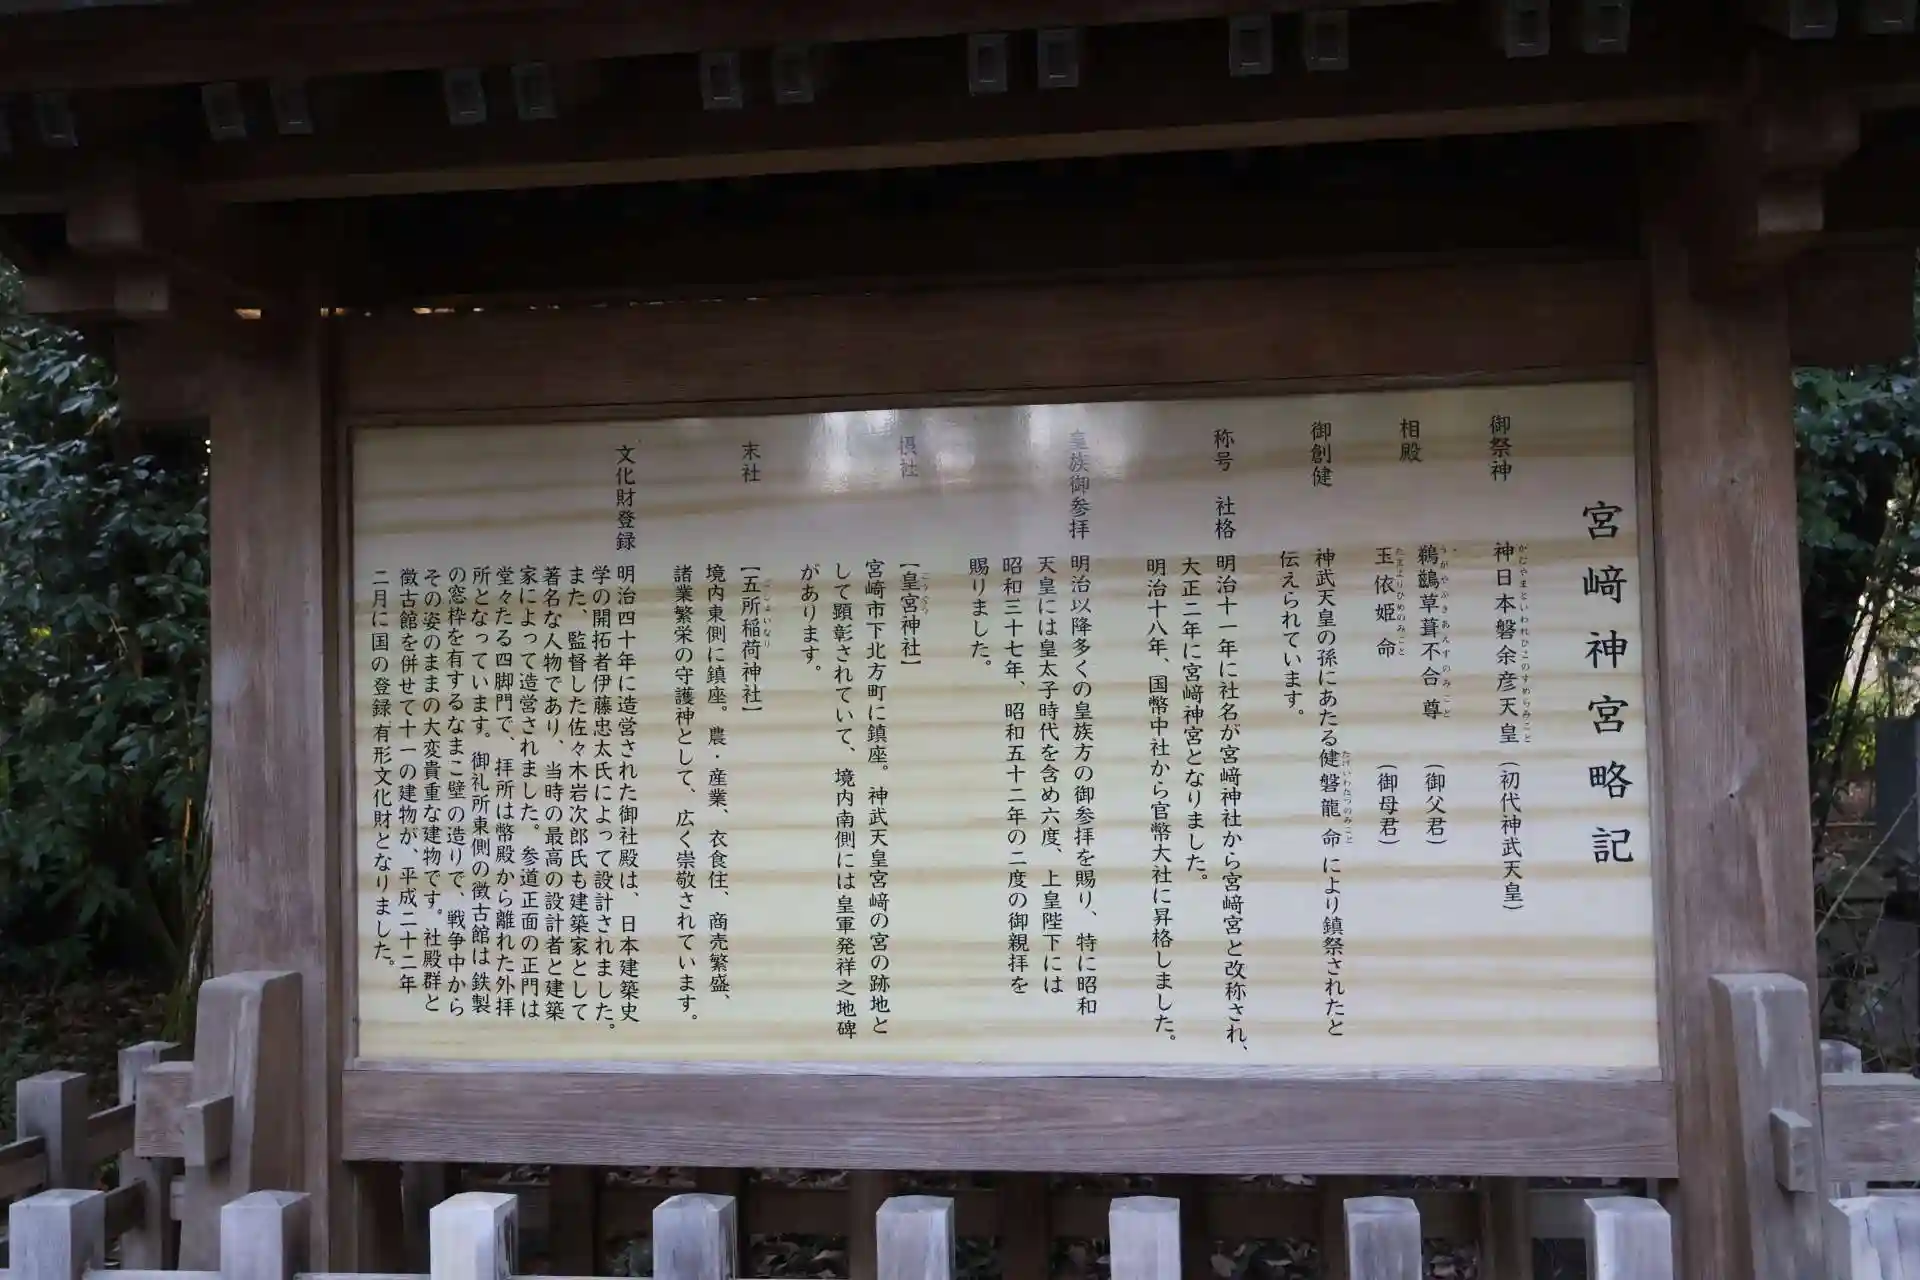 宮﨑神宮略記
御祭神
神日本磐余彦天皇（初代神武天皇）
かむやまといわれひこのすめらみこと
相殿
鵜鸕草葺不合尊（御父君）
うがやふきあえすのみこと
玉依姫命（御母君）
たまよりひめのみこと
御創健
神武天皇の孫にあたる健磐龍命により鎮祭されたと
たけいわたつのみこと
伝えられています。
称号 社格
明治十一年に社名が宮﨑神社から宮﨑宮と改称され、
大正二年に宮﨑神宮となりました。
明治十八年、国幣中社から官幣大社に昇格しました。
皇族御参拝
明治以降多くの皇族方の御参拝を賜り、特に昭和
天皇には皇太子時代を含め六度、上皇陛下には
昭和三十七年、昭和五十二年の二度の御親拝を
賜りました。
摂社
【皇宮神社】
こうぐう
宮崎市下北方町に鎮座。神武天皇宮﨑の宮の跡地と
して顕彰されていて、境内南側には皇軍発祥之地碑
があります。
末社
【五所稲荷神社】
ごしょいなり
境内東側に鎮座。農・産業、衣食住、商売繁盛、
諸業繁栄の守護神として、広く崇敬されています。
文化財登録
明治四十年に造営された御社殿は、日本建築史
学の開拓者伊藤忠太氏によって設計されました。
また、監督した佐々木岩次郎氏も建築家として
著名な人物であり、当時の最高の設計者と建築
家によって造営されました。参道正面の正門は
堂々たる四脚門で、拝所は幣殿から離れた外拝
所となっています。御礼所東側の徴古館は鉄製
の窓枠を有するなまこ壁の造りで、戦争中から
その姿のままの大変貴重な建物です。社殿群と
徴古館を併せて十一の建物が、平成二十二年
二月に国の登録有形文化財となりました。